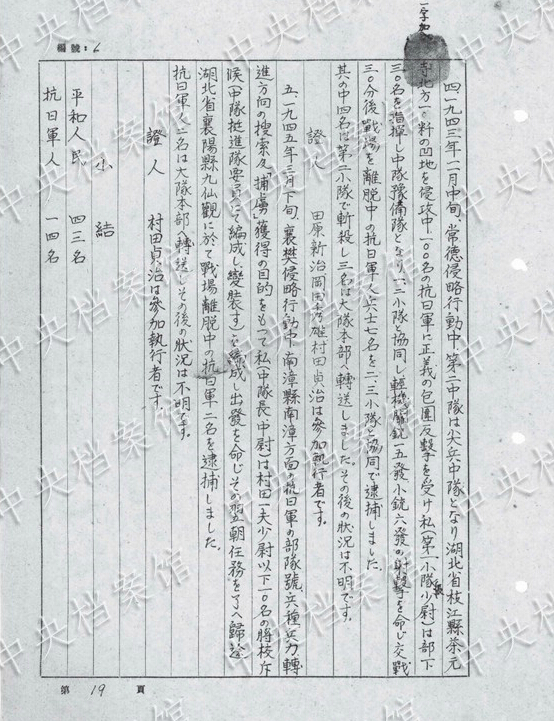 編號：6
一字加
四、一九四三年一一月中旬、常德侵略行動中、第二中隊は尖兵中隊となり湖北省枝江縣茶元
寺北方一〇料の凹地を侵攻中一〇〇名の抗日軍に正義の包圍反擊を受け私(第一小隊長少尉)は部下
三〇名を指揮し中隊豫備隊となり一、三小隊と協同し輕機關銃一五發小銃六發の射擊を命じ交戰
三〇分後戰場を離脫中の抗日軍人六十七名を二、三小隊と協同で逮捕しました。
其の中四名は第二小隊で斬殺し三名は大隊本部へ轉送しました。その後の狀況は不明です。
證人 田原新治 村田貞治は參加執行者です。
五、一九四五年三月下旬、襄樊侵略行動中、南漳縣南漳方面の抗日軍の部隊號、兵種、兵力、轉
進方向の搜索及「捕虜」獲得の目的をもつて私(中隊長中尉)は村田一夫少尉以下一〇名の將校斥
候(中隊挺進隊要員にて編成し變裝す)を編成し出發を命じその翌朝任務を了へ歸途
湖北省襄陽縣九仙觀に於て戰場離脫中の抗日軍人二名を逮捕しました。
抗日軍人二名は大隊本部へ轉送し、その後の狀況は不明です。
證人 村田貞治は參加執行者です。
小結
平和人民 四三名
抗日軍人 一四名
第 19 頁
中央档案馆